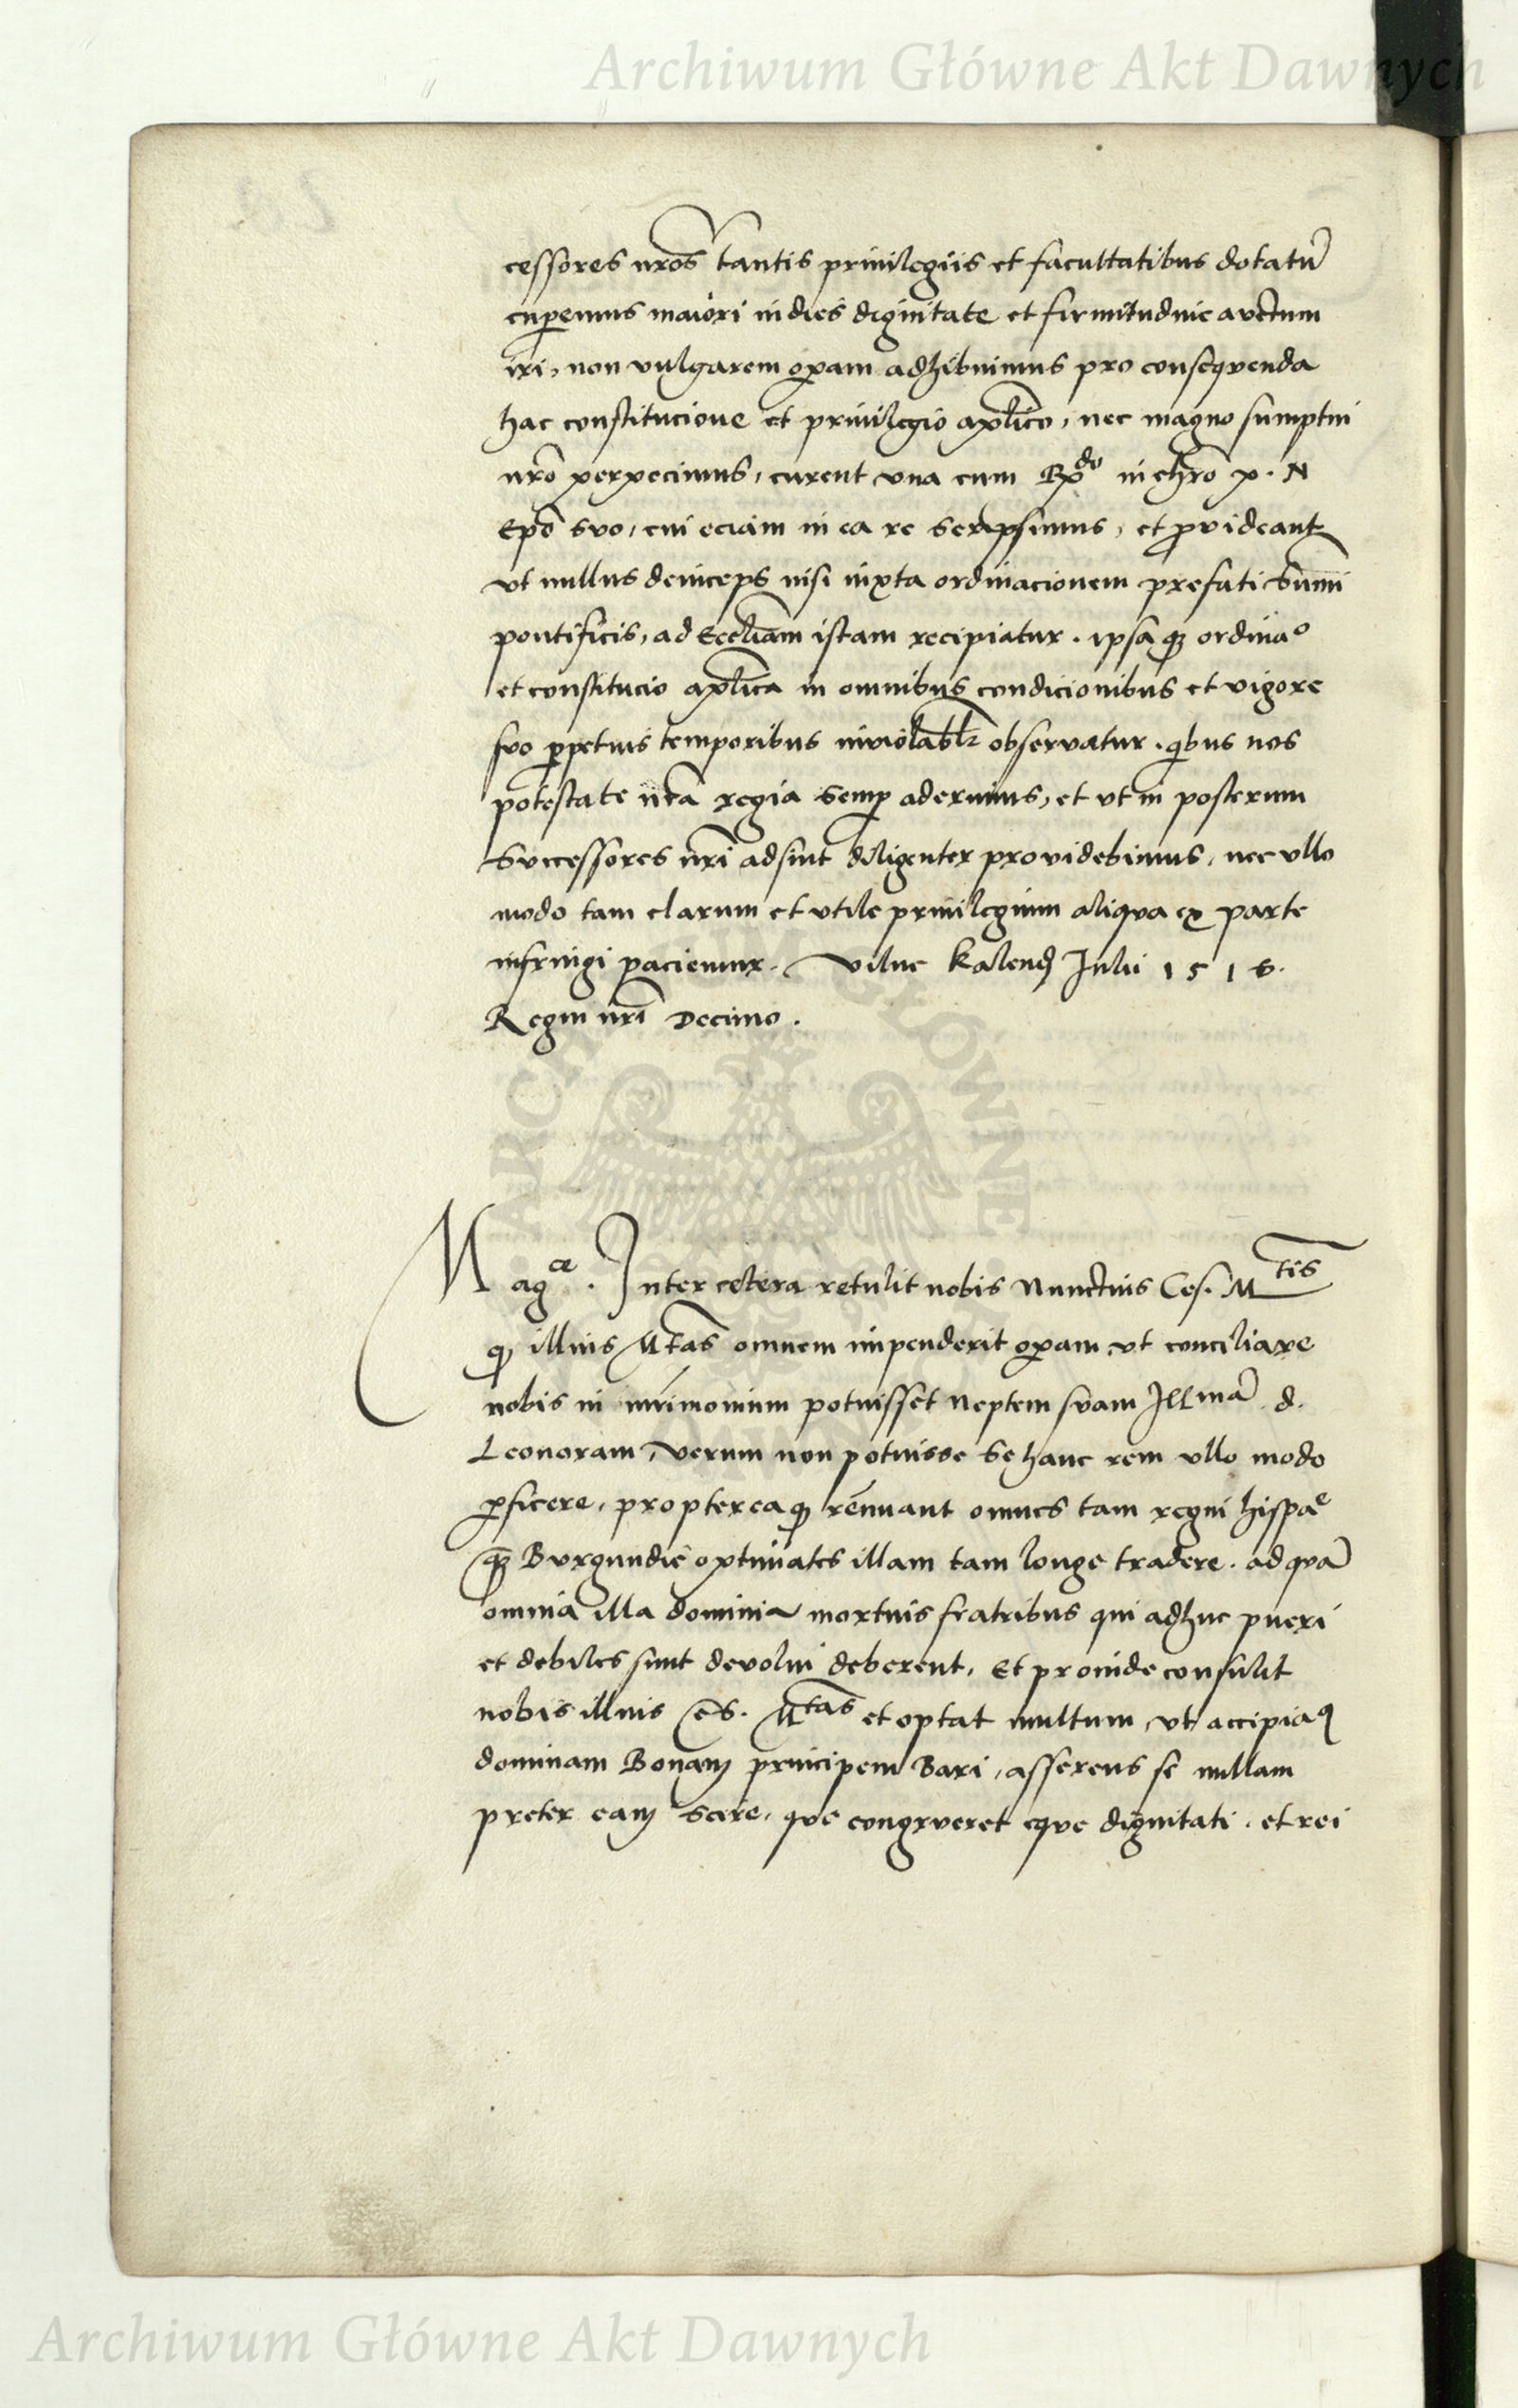 Archiwum Główne Akt Dawnych
cessores nr̃os tantis priuilegiis et facultatibus dotatũ
cuperemus maiori indies dignitate et firmitudine auctum
iri, non vulgarem op̃am adhibuimus pro consequenda
hac constitucione et priuilegio ap̃lico, nec magno sumptui
nr̃o perpecimus, curent vna cum Rp̃do in chr̃o p. N
Ep̃o suo, cui eciam in ea re scripsimus, et provideant
vt nullus deinceps nisi iuxta ordinacionem prefati Sum̃i
pontificis, ad Ecc̃liam istam recipiatur. ipsaq; ordinao
et constitucio ap̃lica in omnibus condicionibus et vigore
suo ꝑpetuis temporibus inviolabl̃r observatur. qibus nos
potestate nr̃a regia semꝑ aderimus, et vt in posterum
Successores nr̃i adsint diligenter providebimus, nec vllo
modo tam clarum et vtile priuilegium aliqva ex parte
infringi paciemur. Vilne Kalend̃ Julii 1516.
Regni nr̃i Decimo.
Magce. Inter cetera retulit nobis Nunctius Ces. Mtis
ꝙ illius Mtas omnem impenderit op̃am vt conciliare
nobis in mr̃imonium potuisset Neptem suam Illmã d.
Leonoram, verum non potuisse se hanc rem vllo modo
ꝑficere, proptereaꝙ reñuant omnes tam regni hispae
q̃ Burgundie optimates illam tam longe tradere. ad qvã
omnia illa dominia mortuis fratribus qui adhuc pueri
et debiles sunt devolui deberent, Et proinde consulit
nobis illius Ces. Mtas et optat multum, vt accipiaꝯ
dominam Bonam principem Bari, asserens se nullam
preter eam scire, qve congrveret eqve dignitati. et rei
Archiwum Główne Akt Dawnych